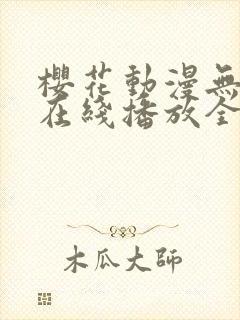 櫻花動漫無
在綫播放全
木瓜大師